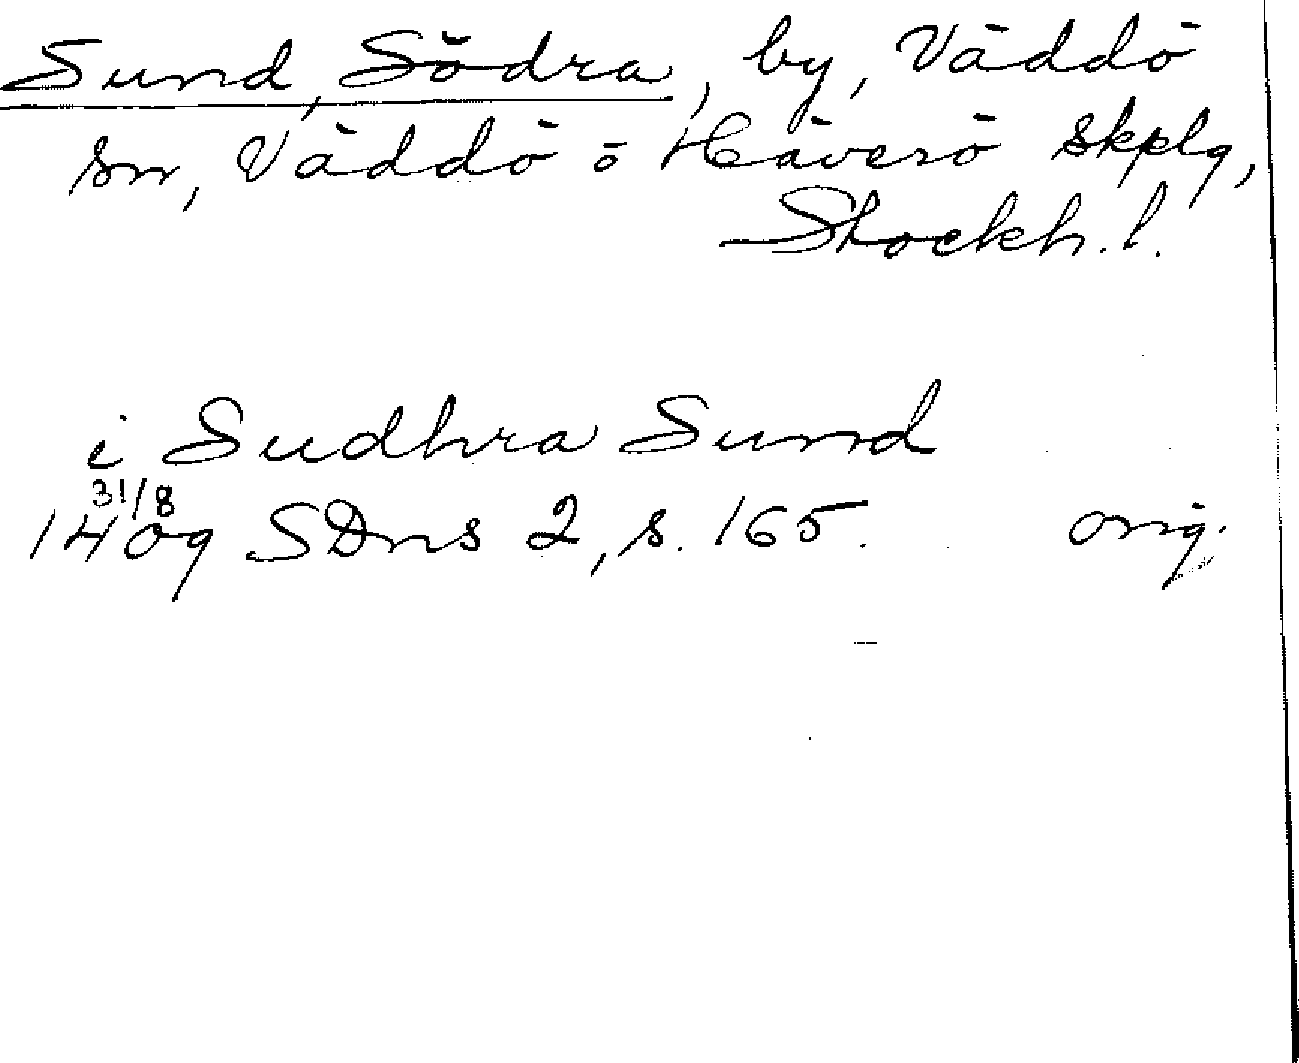 Sund, Södra, by, Väddö
sn, Väddö o Häverö skplg,
Stockh. l.
i Sudhra Sund
31/8
1409 SDns 2, s. 165. orig.